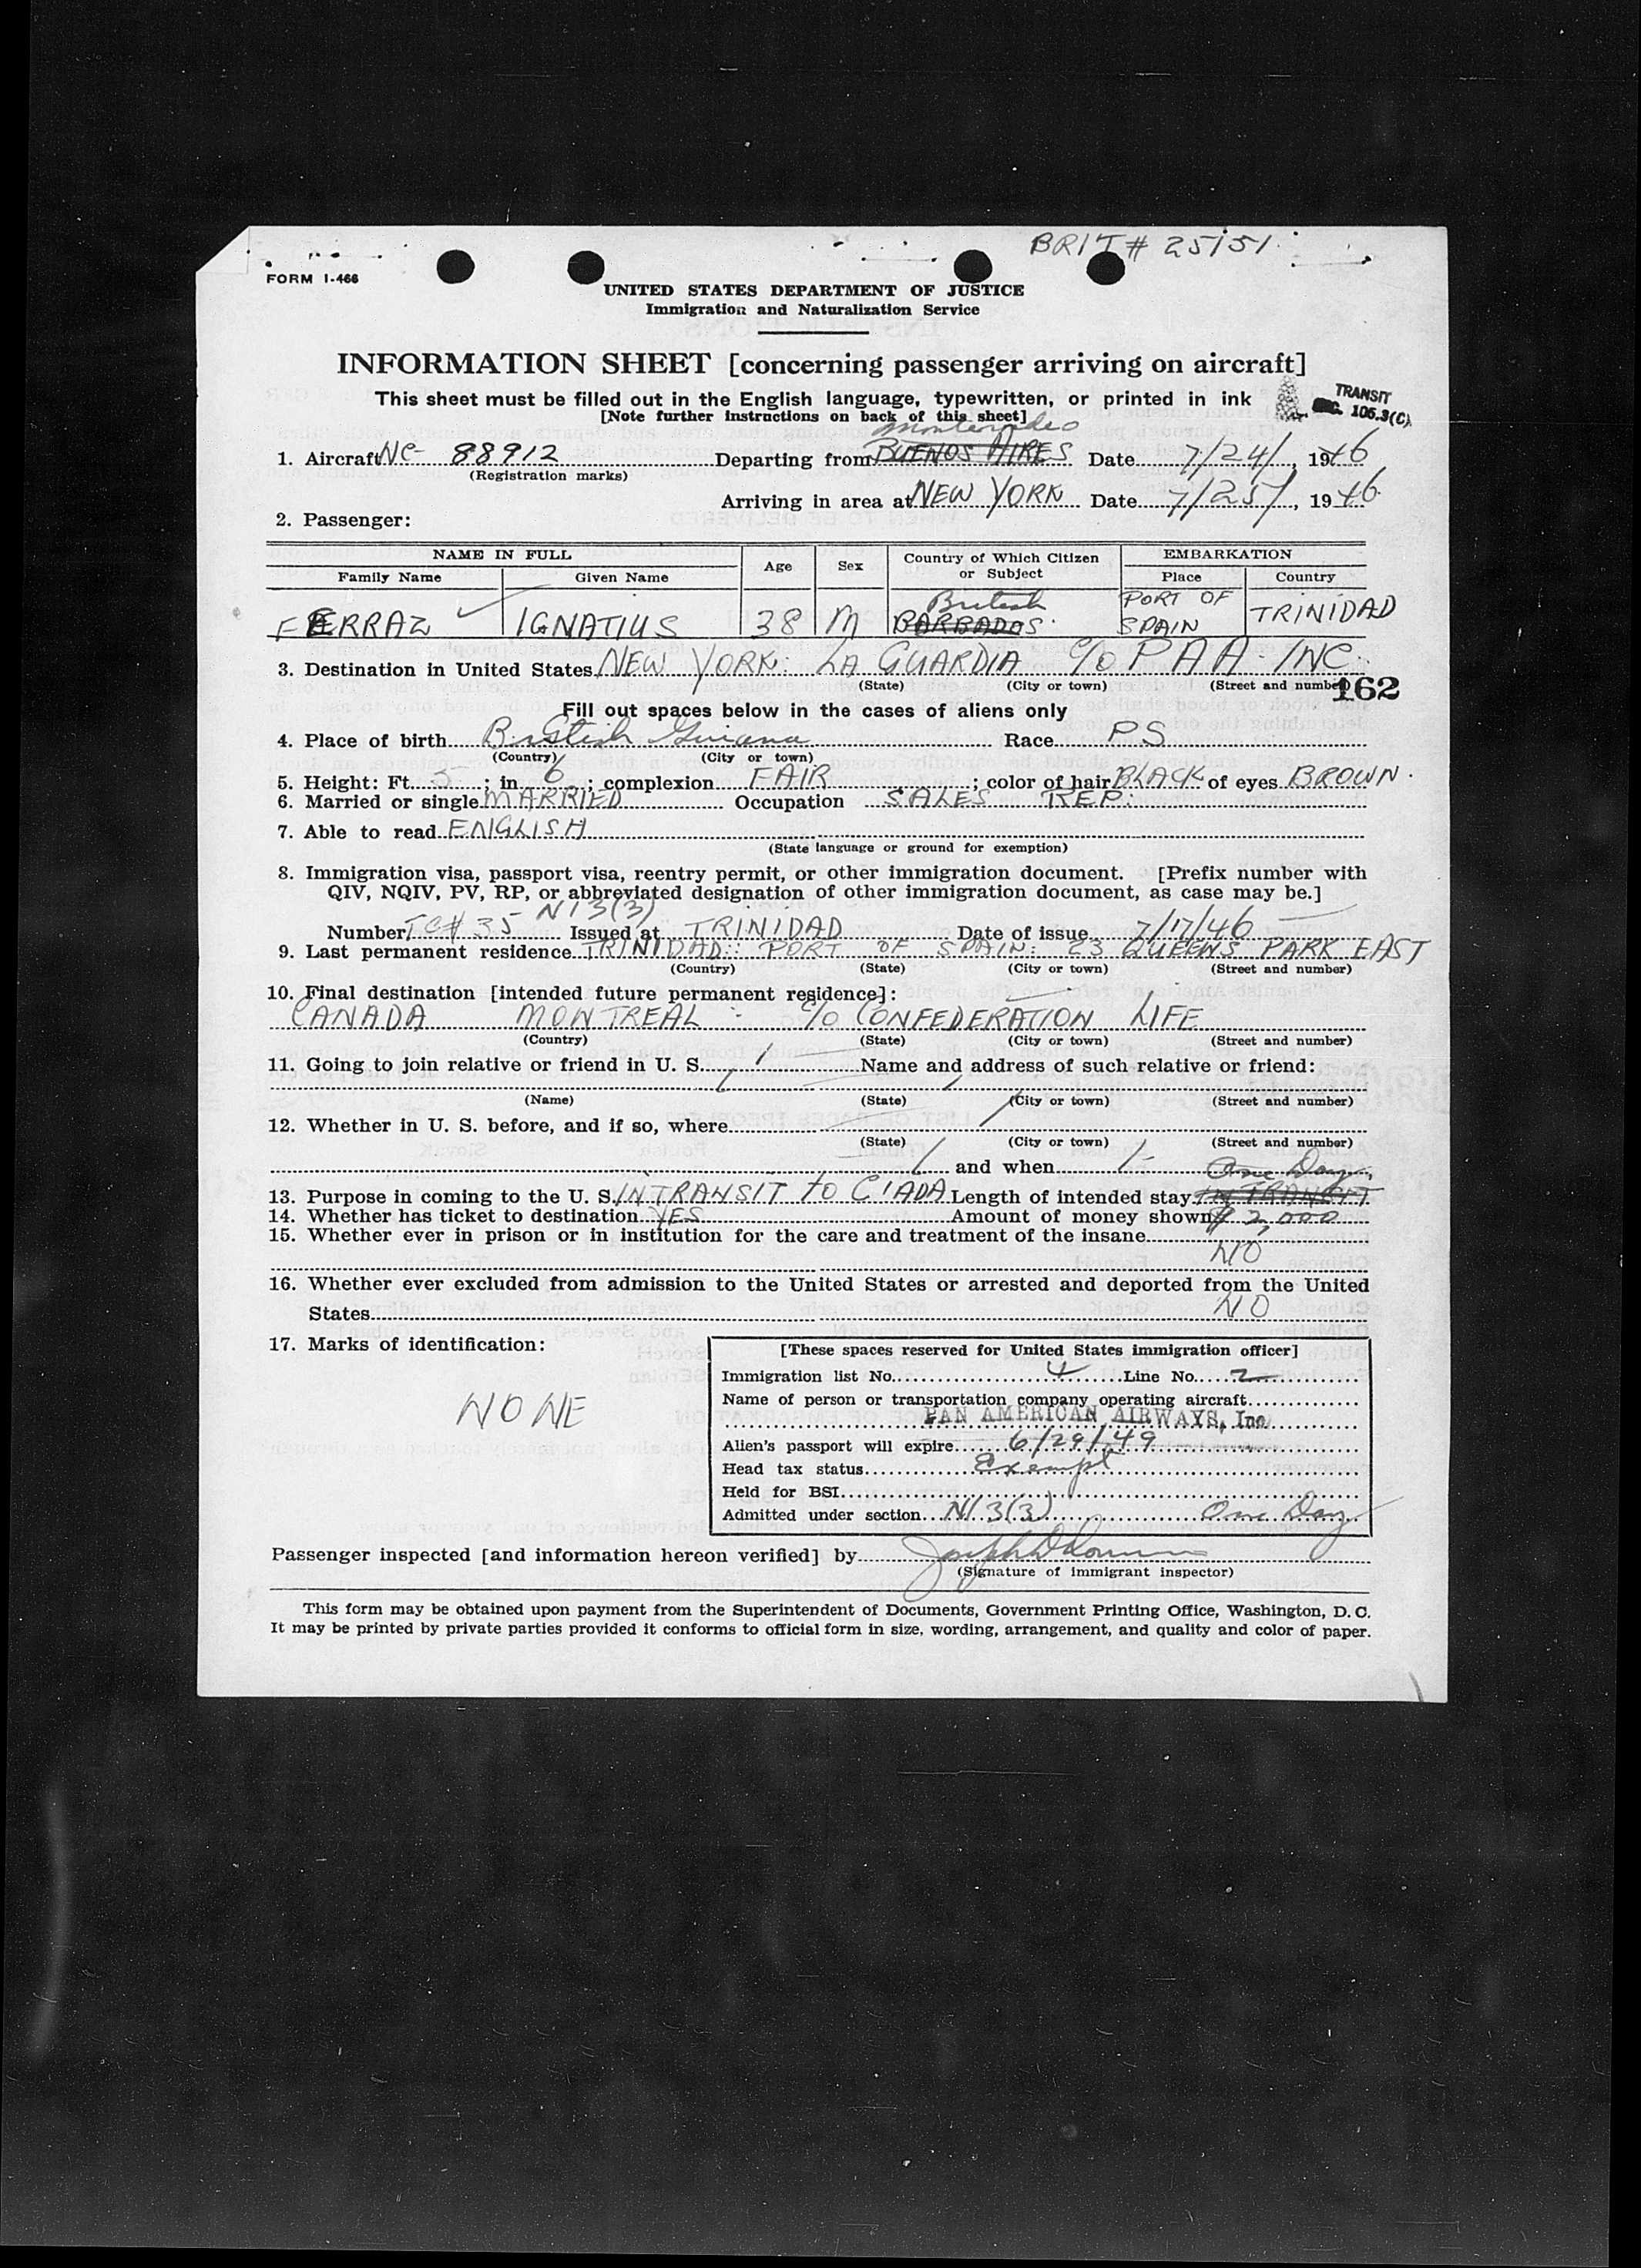 BRIT # 25151
FORM I-466
UNITED STATES DEPARTMENT OF JUSTICE
Immigration and Naturalization Service
INFORMATION SHEET [concerning passenger arriving on aircraft]
This sheet must be filled out in the English language, typewritten, or printed in ink
TRANSIT
[Note further instructions on back of this sheet]
105.3(C)
Montevideo
1. Aircraft NC- 88912 Departing from BUENOS AIRES Date 7/24/, 1946
(Registration marks)
Arriving in area at NEW YORK Date 7/25/, 1946
2. Passenger:
NAME IN FULL Age Sex Country of Which Citizen or Subject EMBARKATION
Family Name Given Name Place Country
British PORT OF
FERRAZ IGNATIUS 38 M BARBADOS SPAIN TRINIDAD
3. Destination in United States NEW YORK: LA GUARDIA C/O P A A. INC.
(State) (City or town) (Street and number)
162
Fill out spaces below in the cases of aliens only
4. Place of birth British Guiana Race PS
(Country) (City or town)
5. Height: Ft. 5; in 6; complexion FAIR; color of hair BLACK of eyes BROWN.
6. Married or single MARRIED Occupation SALES REP.
7. Able to read ENGLISH
(State language or ground for exemption)
8. Immigration visa, passport visa, reentry permit, or other immigration document. [Prefix number with
QIV, NQIV, PV, RP, or abbreviated designation of other immigration document, as case may be.]
N13(3)
Number TC# 35 Issued at TRINIDAD Date of issue 7/17/46
9. Last permanent residence TRINIDAD: PORT OF SPAIN: 23 QUEENS PARK EAST
(Country) (State) (City or town) (Street and number)
10. Final destination [intended future permanent residence]:
CANADA MONTREAL : C/O CONFEDERATION LIFE
(Country) (State) (City or town) (Street and number)
11. Going to join relative or friend in U. S. Name and address of such relative or friend:
(Name) (State) (City or town) (Street and number)
12. Whether in U. S. before, and if so, where
(State) (City or town) (Street and number)
and when One Day
13. Purpose in coming to the U. S. INTRANSIT TO C'ADA Length of intended stay IN TRANSIT
14. Whether has ticket to destination YES Amount of money shown $ 2,000
15. Whether ever in prison or in institution for the care and treatment of the insane
NO
16. Whether ever excluded from admission to the United States or arrested and deported from the United
States NO
17. Marks of identification:
NONE
[These spaces reserved for United States immigration officer]
Immigration list No. 4 Line No. 2
Name of person or transportation company operating aircraft
PAN AMERICAN AIRWAYS, Inc.
Alien's passport will expire 6/29/49
Head tax status Exempt
Held for BSI
Admitted under section N13(3) One Day
Passenger inspected [and information hereon verified] by
(Signature of immigrant inspector)
This form may be obtained upon payment from the Superintendent of Documents, Government Printing Office, Washington, D. C.
It may be printed by private parties provided it conforms to official form in size, wording, arrangement, and quality and color of paper.